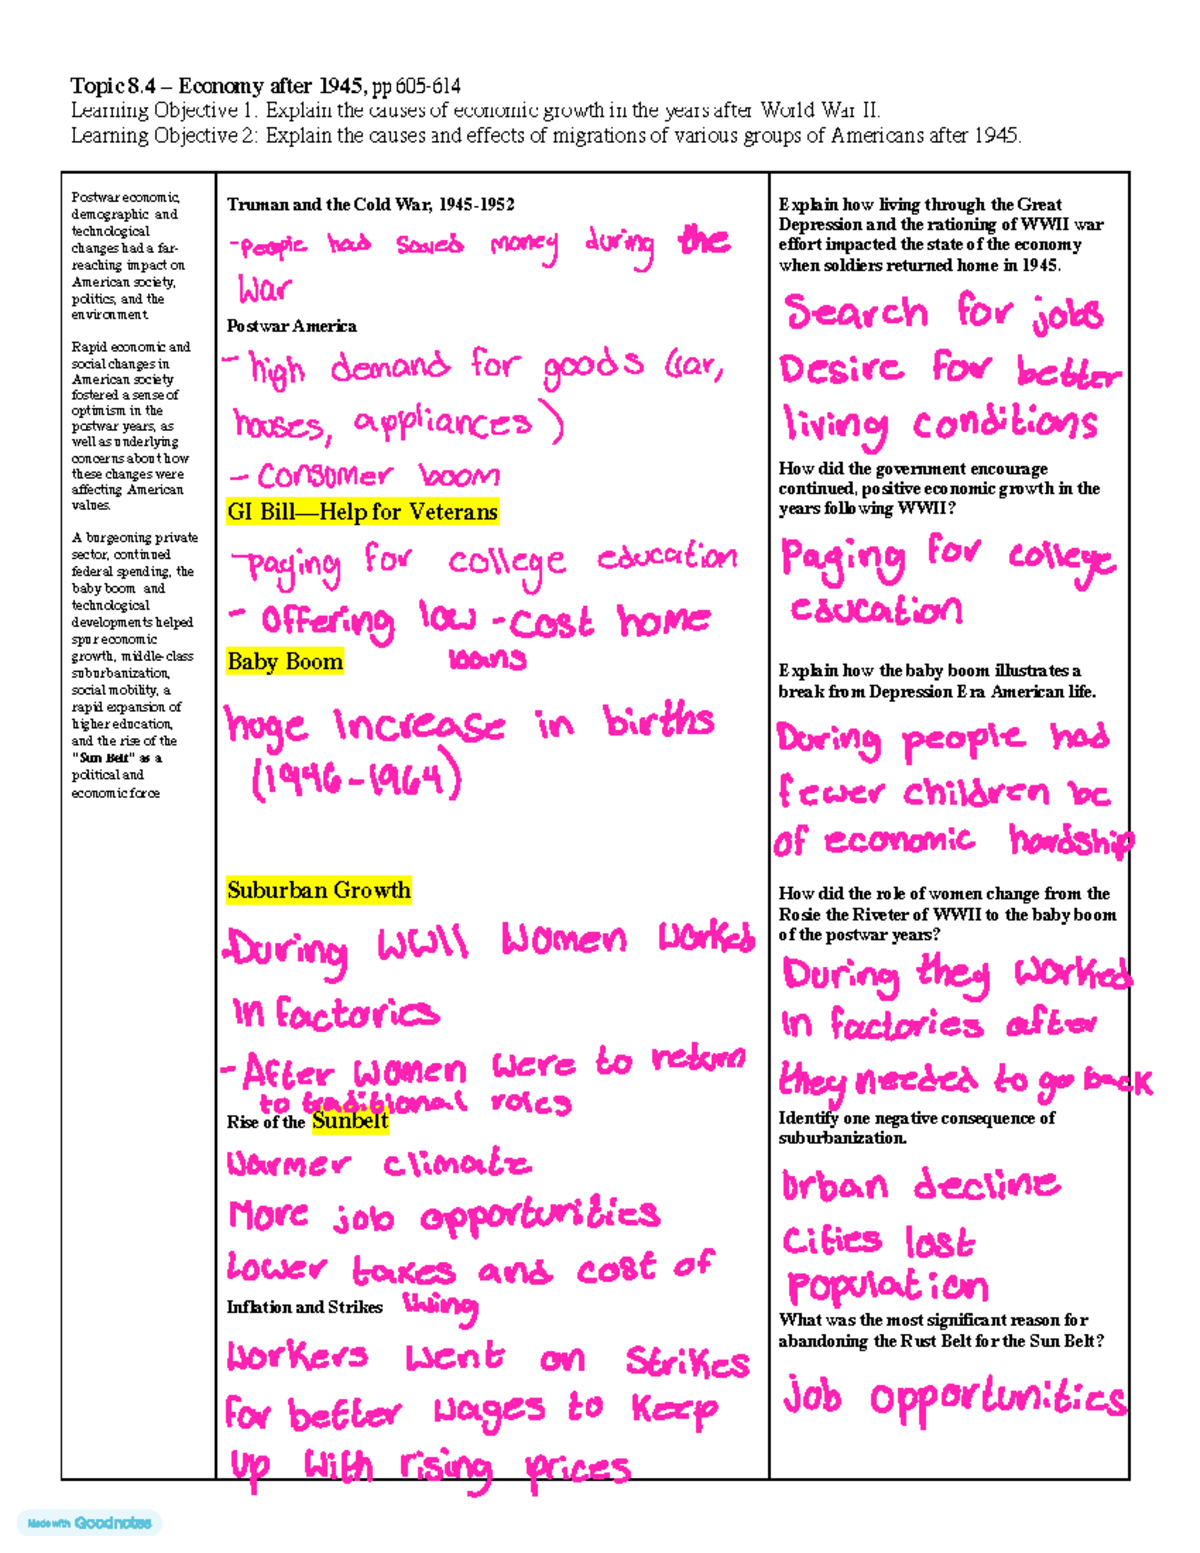 Topic 8.4 – Economy after 1945, pp 605-614
Learning Objective 1: Explain the causes of economic growth in the years after World War II.
Learning Objective 2: Explain the causes and effects of migrations of various groups of Americans after 1945.
Postwar economic,
demographic and
technological
changes had a far-
reaching impact on
American society,
politics, and the
environment.
Rapid economic and
social changes in
American society
fostered a sense of
optimism in the
postwar years, as
well as underlying
concerns about how
these changes were
affecting American
values.
A burgeoning private
sector, continued
federal spending, the
baby boom and
technological
developments helped
spur economic
growth, middle-class
suburbanization,
social mobility, a
rapid expansion of
higher education,
and the rise of the
"Sun Belt" as a
political and
economic force
Truman and the Cold War, 1945-1952
-people had saved money during the
war
Postwar America
- high demand for goods (car,
houses, appliances)
- consumer boom
GI Bill—Help for Veterans
-paying for college education
- offering low-cost home
loans
Baby Boom
huge increase in births
(1946-1964)
Suburban Growth
-During WWII women worked
in factories
- After women were to return
to traditional roles
Rise of the Sunbelt
Warmer climate
More job opportunities
Lower taxes and cost of
living
Inflation and Strikes
Workers went on strikes
for better wages to keep
up with rising prices
Explain how living through the Great
Depression and the rationing of WWII war
effort impacted the state of the economy
when soldiers returned home in 1945.
Search for jobs
Desire for better
living conditions
How did the government encourage
continued, positive economic growth in the
years following WWII?
Paying for college
education
Explain how the baby boom illustrates a
break from Depression Era American life.
During people had
fewer children bc
of economic hardship
How did the role of women change from the
Rosie the Riveter of WWII to the baby boom
of the postwar years?
During they worked
in factories after
they needed to go back
Identify one negative consequence of
suburbanization.
Urban decline
Cities lost
population
What was the most significant reason for
abandoning the Rust Belt for the Sun Belt?
job opportunities
Made with Goodnotes